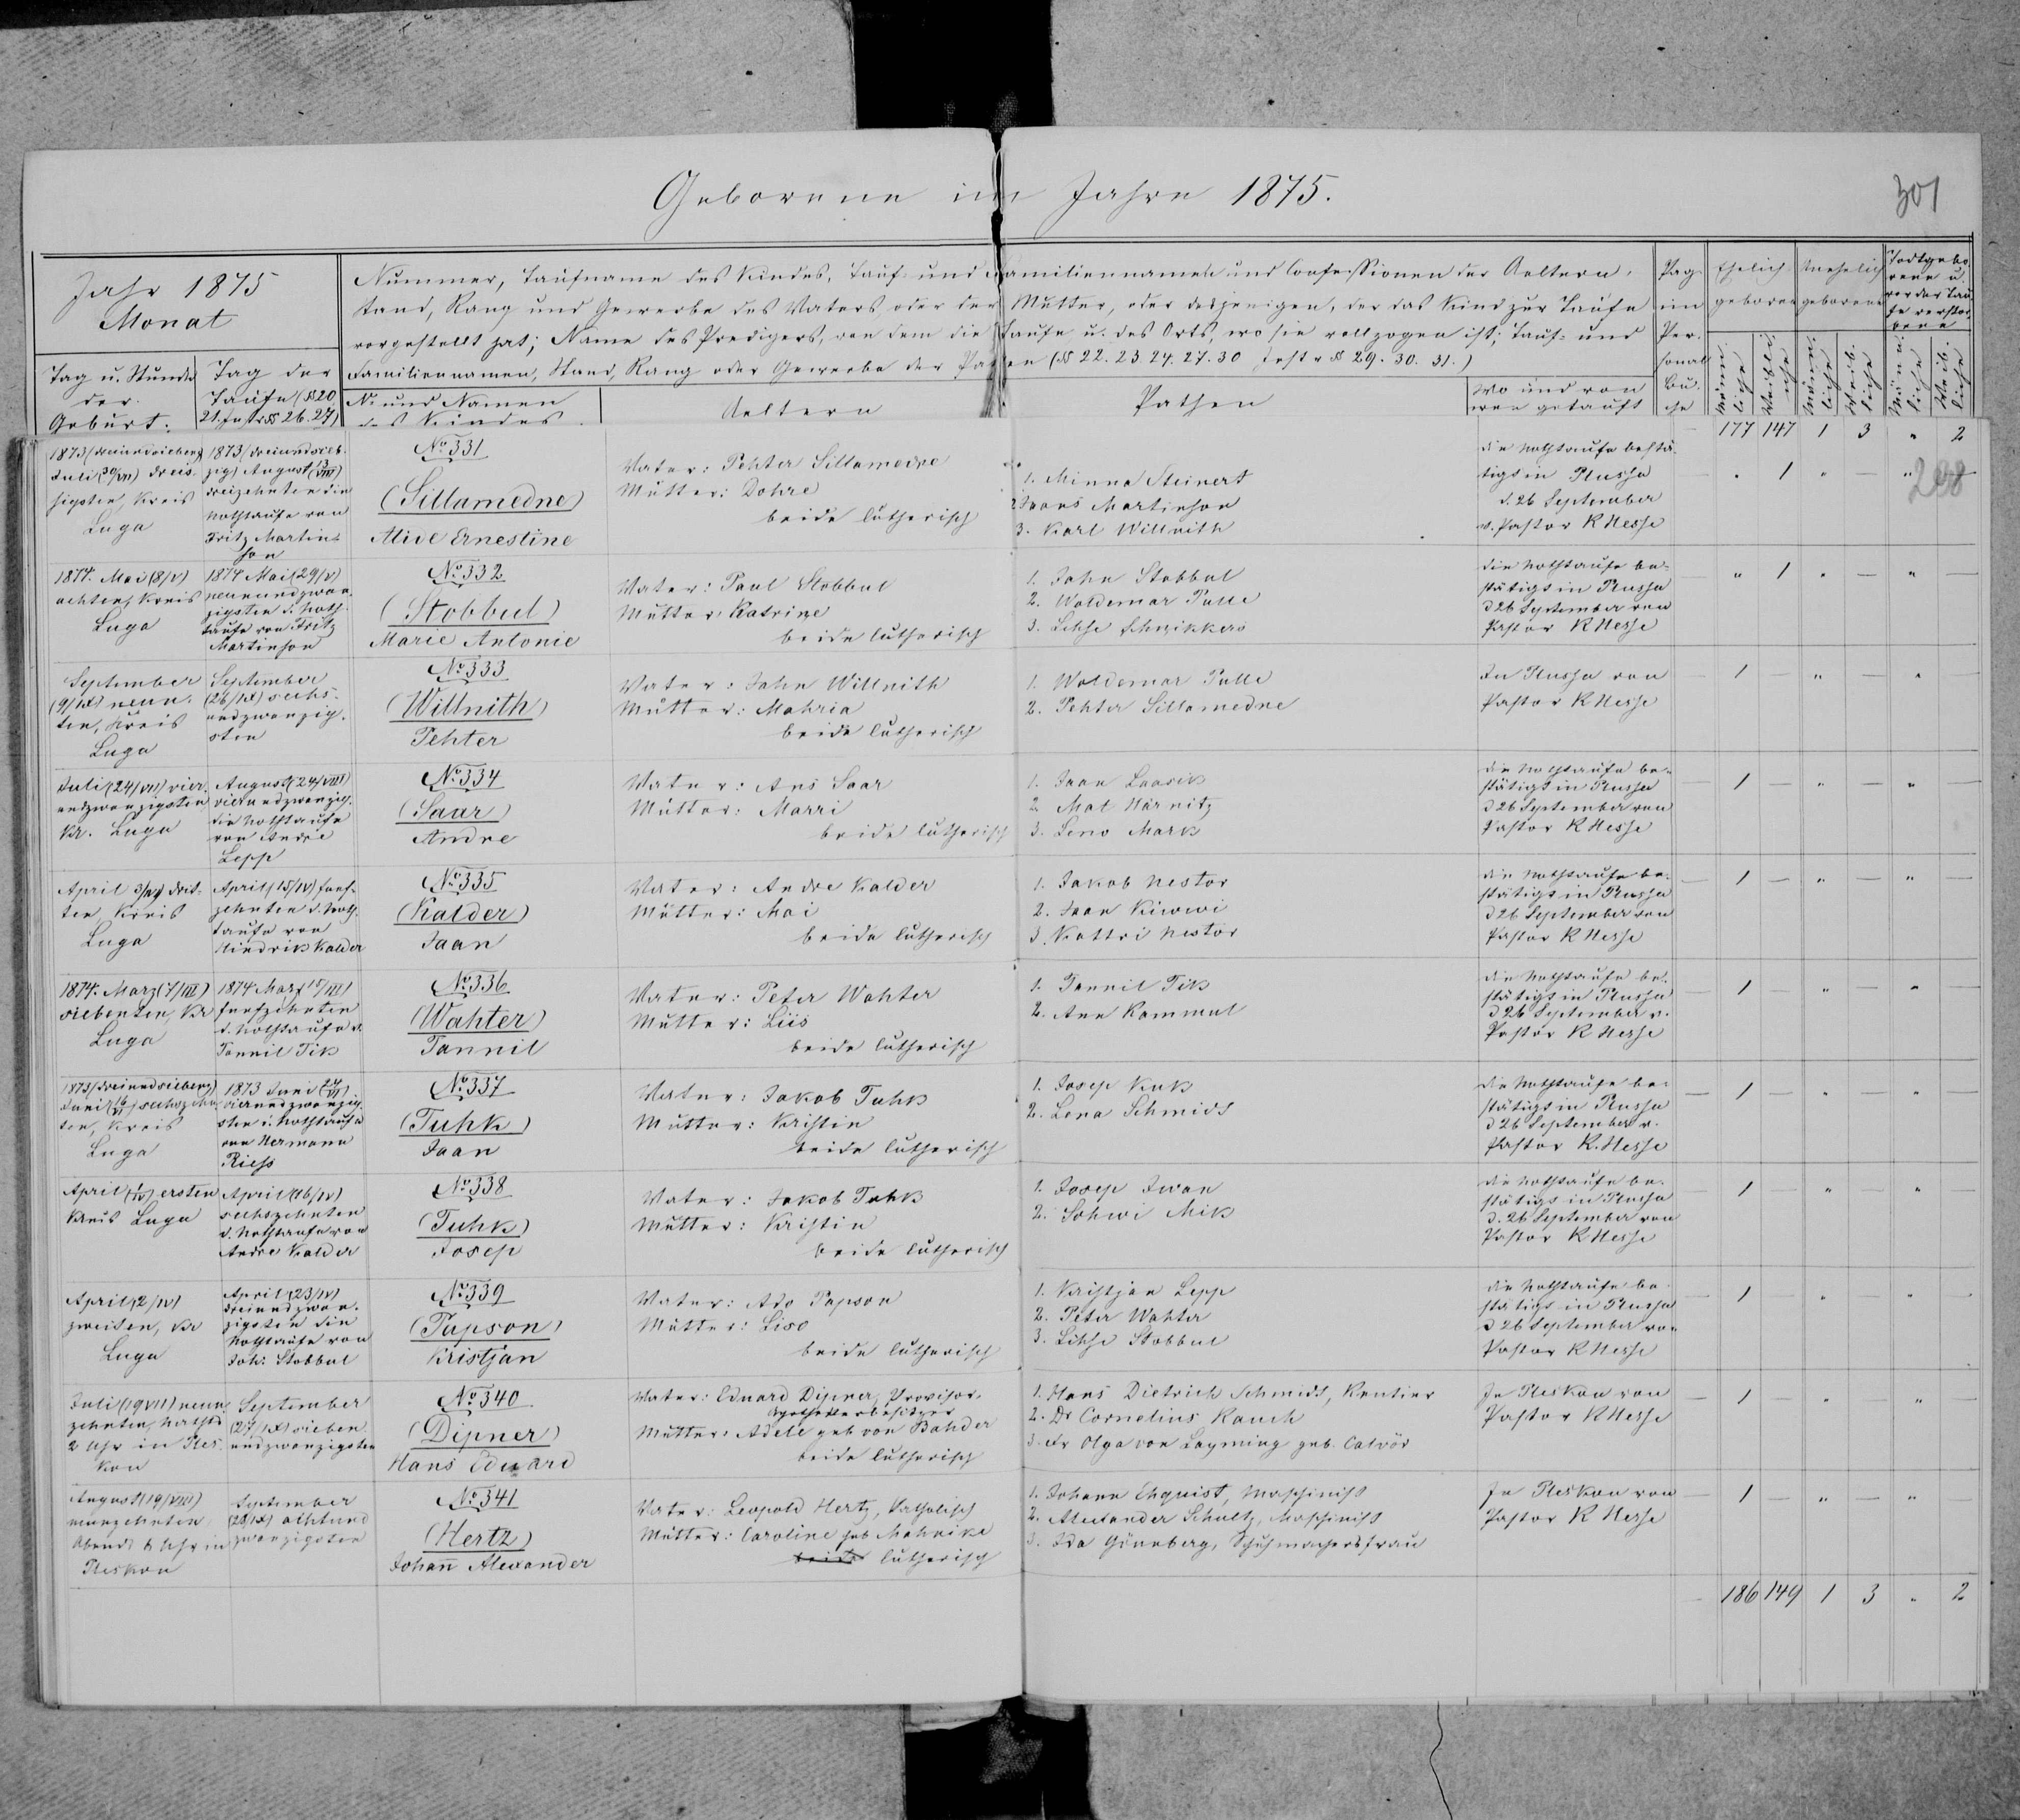 Geborene im Jahre 1875.
301
Jahr 1875
Monat
Tag u. Stunde
der
Geburt.
Tag der
Taufe (§§ 20
21. Instr §§ 26. 27)
Nummer, Taufname des Kindes, Tauf- und Familiennamen und Confessionen der Aeltern,
Stand, Rang und Gewerbe des Vaters oder der Mutter, oder desjenigen, der das Kind zur Taufe
vorgestellt hat; Name des Predigers, von dem die Taufe u. des Orts, wo sie vollzogen ist; Tauf- und
Familiennamen, Stand, Rang oder Gewerbe der Pathen (§§ 22. 23. 24. 27. 30 Instr §§ 29. 30. 31.)
No und Namen
des Kindes
Aeltern
Pathen
Wo und von
wem getauft
Pag
im
Per-
sonal
Bu-
che
Ehelich
geboren
Unehelich
geborene
Todtgebo-
rene u
vor der Tau-
fe verstor-
bene
Männ-
liche
Weibli-
che
Männ-
liche
Weib-
liche
Männ-
liche
Weib-
liche
177 147 1 3 " 2
208
1873 (dreiundsiebenz
Juli (30/VII) dreis-
sigsten, Kreis
Luga
1873 (dreiundsieb-
zig) August (13/VIII)
dreizehnten die
Nothtaufe von
Fritz Martin-
son
No 331
(Sillamedne)
Alide Ernestine
Vater: Pehter Sillamedne
Mutter: Dohre
beide lutherisch
1. Minna Steinert
2. Jaans Martinson
3. Karl Willnith
die Nothtaufe bestä-
tigt in Plussa
d. 26 September
v. Pastor K Hesse
" 1 " — "
1874. Mai (8/V)
achten, Kreis
Luga
1874 Mai (29/V)
neunundzwan-
zigsten d. Noth-
taufe von Fritz
Martinson
No 332
(Stobbul)
Marie Antonie
Vater: Paul Stobbul
Mutter: Katrine
beide lutherisch
1. Jahn Stobbul
2. Woldemar Pulle
3. Lihse Schwikkers
die Nothtaufe be-
stätigt in Plussa
d 26 September von
Pastor K Hesse
" 1 " — "
September
(9/IX) neun-
ten, Kreis
Luga
September
(26/IX) sechs-
undzwanzig-
sten
No 333
(Willnith)
Pehter
Vater: Jahn Willnith
Mutter: Mahria
beide lutherisch
1. Woldemar Pulle
2. Pehter Sillamedne
In Plussa von
Pastor K Hesse
1 " — "
Juli (24/VII) vier-
undzwanzigsten
Kr. Luga
August (24/VIII)
vierundzwanzig-
die Nothtaufe
von Andre
Lepp
No 334
(Saar)
Andre
Vater: Ans Saar
Mutter: Marri
beide lutherisch
1. Jaan Laasik
2. Mat Härnitz
3. Leno Mark
die Nothtaufe be-
stätigt in Plussa
d 26 September von
Pastor K Hesse
1 — " — "
April (3/IV) drit-
ten, Kreis
Luga
April (15/IV) fünf-
zehnten d. Noth-
taufe von
Hindrik Kalder
No 335
(Kalder)
Jaan
Vater: Andre Kalder
Mutter: Mai
beide lutherisch
1. Jakob Nestor
2. Jaan Kiwwi
3. Kattri Nestor
die Nothtaufe be-
stätigt in Plussa
d 26 September von
Pastor K Hesse
1 — " — "
1874. März (7/III)
siebenten, Kr
Luga
1874 März 15/III
fünfzehnten
d. Nothtaufe v.
Tannil Tik
No 336
(Wahter)
Tannil
Vater: Peter Wahter
Mutter: Liis
beide lutherisch
1. Tannil Tik
2. Ann Rammul
die Nothtaufe be-
stätigt in Plussa
d 26 September v.
Pastor K Hesse
1 — " — "
1873 (dreiundsiebenz)
Juni (16/VI) sechszehn-
ten, Kreis
Luga
1873 Juni (24/VI)
vierundzwanzig-
sten d. Nothtaufe
von Hermann
Riess
No 337
(Tuhk)
Jaan
Vater: Jakob Tuhk
Mutter: Kristin
beide lutherisch
1. Josep Kuk
2. Lena Schmidt
die Nothtaufe be-
stätigt in Plussa
d 26 September v.
Pastor K. Hesse
1 — " — "
April (1/IV) ersten
Kreis Luga
April (16/IV)
sechszehnten
d. Nothtaufe von
Andre Kalder
No 338
(Tuhk)
Josep
Vater: Jakob Tuhk
Mutter: Kristin
beide lutherisch
1. Josep Iwan
2. Sohwi Mik
die Nothtaufe be-
stätigt in Plussa
d. 26 September von
Pastor K Hesse
1 " — "
April (2/IV)
zweiten, Kr
Luga
April (23/IV)
dreiundzwan-
zigsten die
Nothtaufe von
Joh. Stobbul
No 339
(Papson)
Kristjan
Vater: Ado Papson
Mutter: Liso
beide lutherisch
1. Kristjan Lepp
2. Peter Wahter
3. Lihse Stobbul
die Nothtaufe be-
stätigt in Plussa
d 26 September von
Pastor K Hesse
1 " — "
Juli (19/VII) neun-
zehnten, Nachts
2 Uhr in Ples-
kau
September
(27/IX) sieben
undzwanzigsten
No 340
(Dipner)
Hans Eduard
Vater: Eduard Dipner, Provisor,
Apothekenbesitzer
Mutter: Adele geb von Bahder
beide lutherisch
1. Hans Dietrich Schmidt, Rentier
2. Dr Cornelius Rauch
3. Fr Olga von Layming geb. Calvör
In Pleskau von
Pastor K Hesse
1 " "
August (19/VIII)
neunzehnten
Abends 6 Uhr in
Pleskau
September
(28/IX) achtund
zwanzigsten
No 341
(Hertz)
Johann Alexander
Vater: Leopold Hertz, Katholisch
Mutter: Caroline geb Mahnike
beide lutherisch
1. Johann Ehquist, Maschinist
2. Alexander Schultz, Maschinist
3. Ida Grünberg, Schuhmachersfrau
In Pleskau von
Pastor K Hesse
1 — " — "
186 149 1 3 " 2